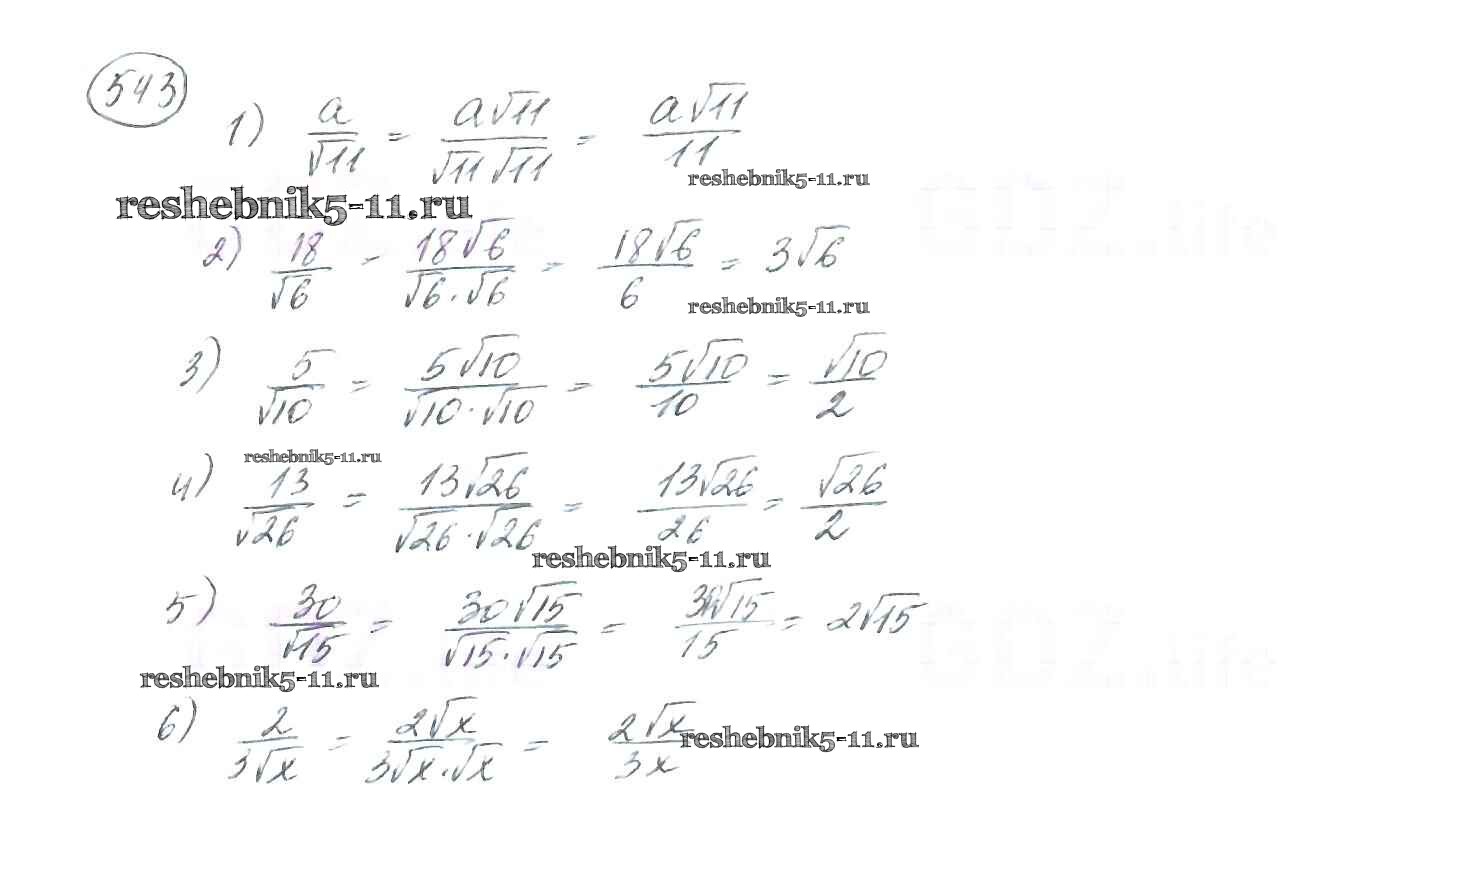 543
1) a/√11 = a√11/√11 √11 = a√11/11
reshebnik5-11.ru
reshebnik5-11.ru
GDZ.life
GDZ.life
2) 18/√6 = 18√6/√6·√6 = 18√6/6 = 3√6
reshebnik5-11.ru
3) 5/√10 = 5√10/√10·√10 = 5√10/10 = √10/2
reshebnik5-11.ru
4) 13/√26 = 13√26/√26·√26 = 13√26/26 = √26/2
reshebnik5-11.ru
5) 30/√15 = 30√15/√15·√15 = 30√15/15 = 2√15
GDZ.life
GDZ.life
reshebnik5-11.ru
6) 2/3√x = 2√x/3√x·√x = 2√x/3x
reshebnik5-11.ru